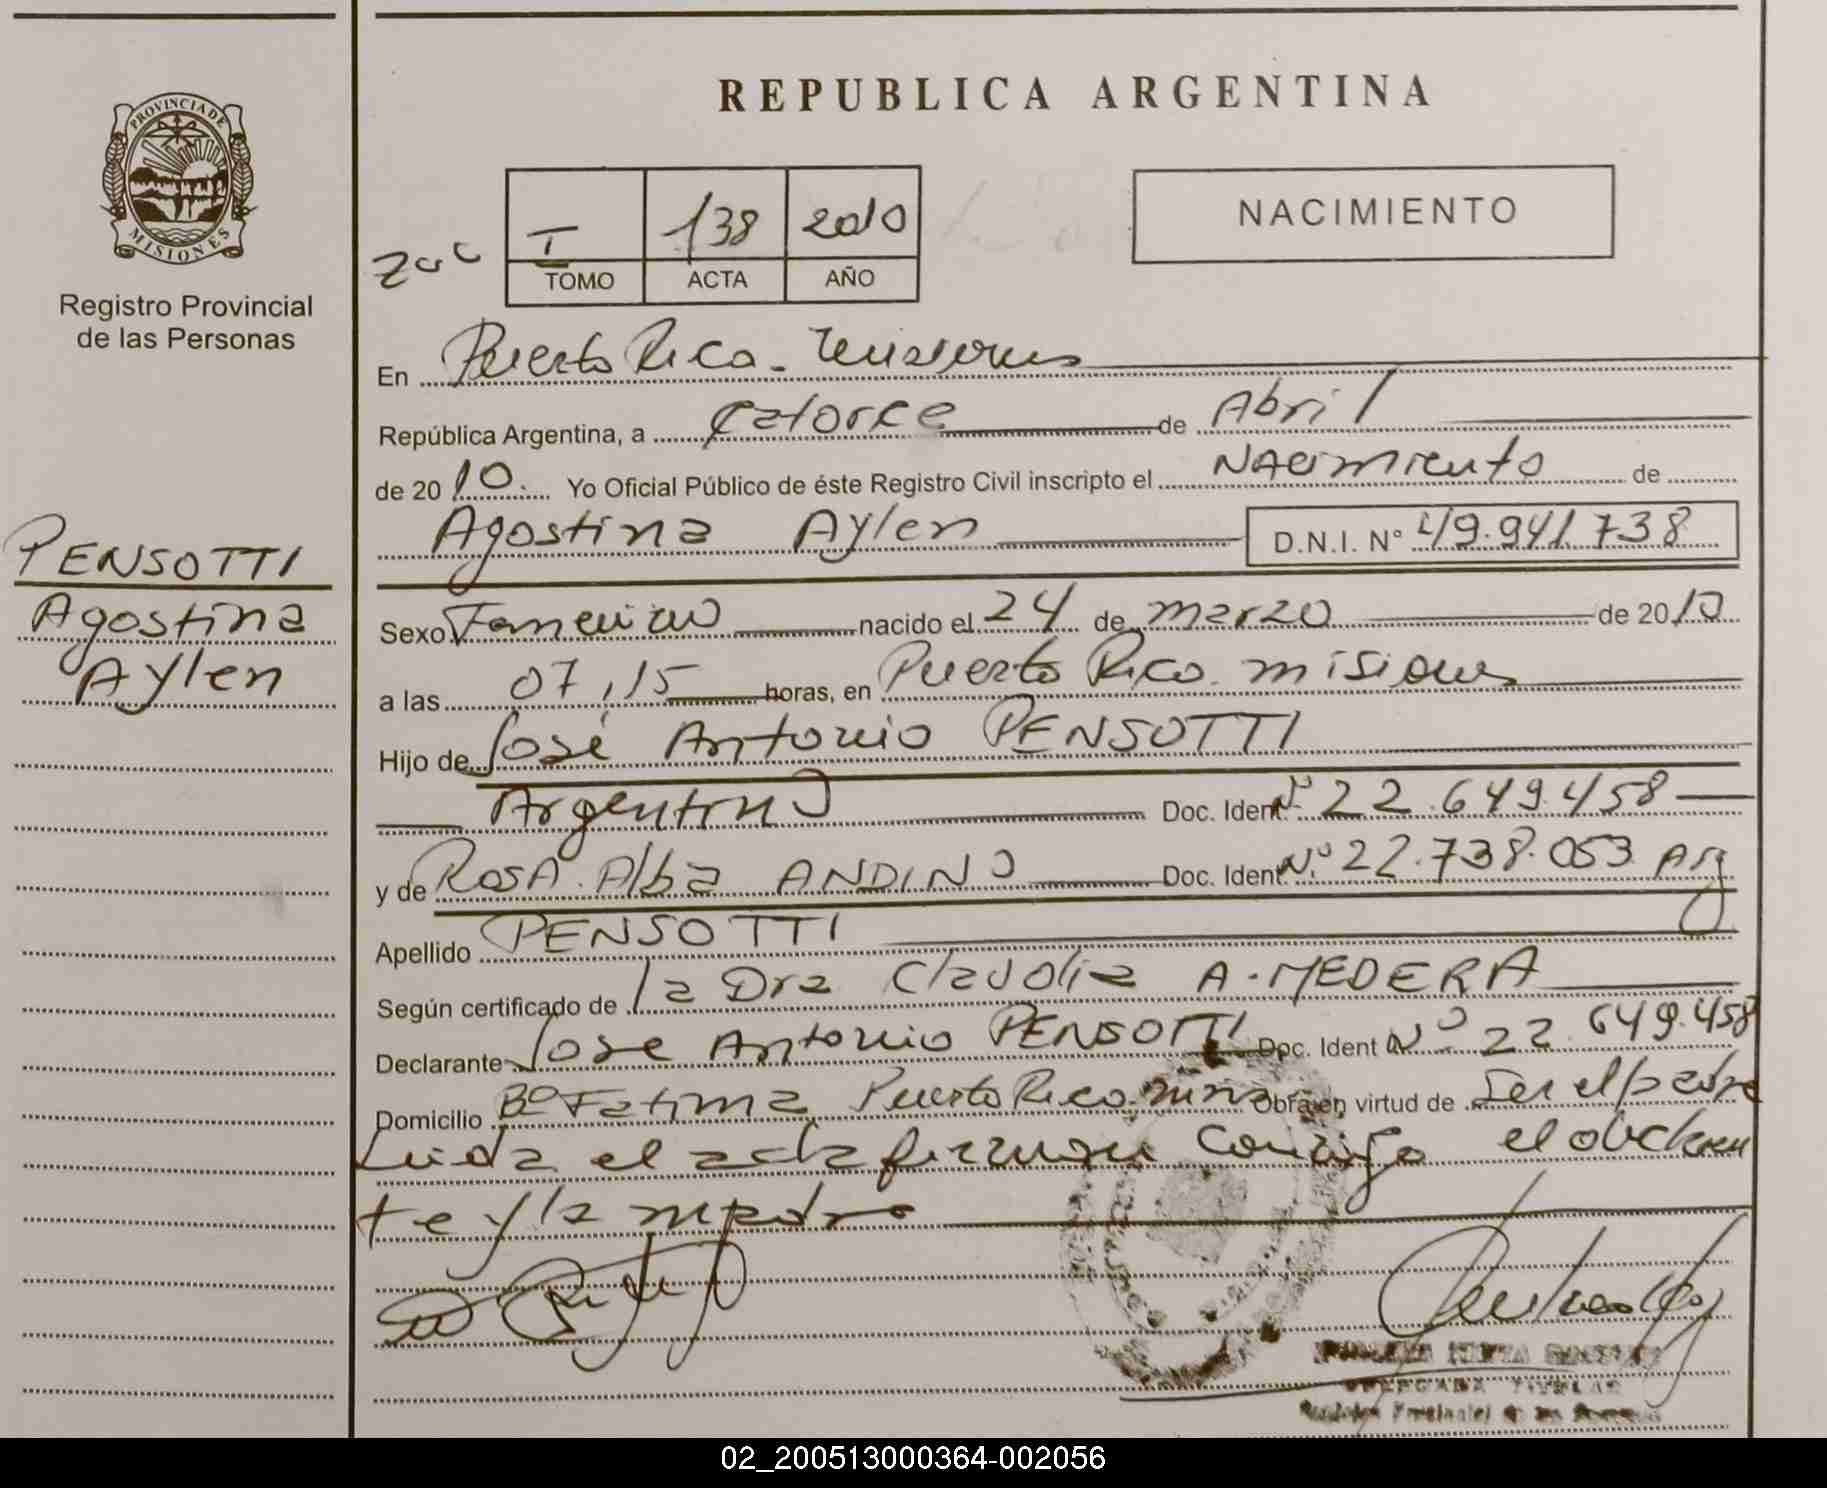 REPUBLICA ARGENTINA
PROVINCIA DE
MISIONES
Registro Provincial
de las Personas
NACIMIENTO
I 138 2010
TOMO ACTA AÑO
En Puerto Rico - Misiones
República Argentina, a catorce de Abril
de 20 10. Yo Oficial Público de éste Registro Civil inscripto el Nacimiento de
Agostina Aylen D.N.I. N° 49.941.738
PENSOTTI
Agostina
Aylen
Sexo Femenino nacido el 24 de marzo de 20 10
a las 07,15 horas, en Puerto Rico misiones
Hijo de José Antonio PENSOTTI
Argentino Doc. Ident. N° 22.649.458
y de ROSA Alba ANDINO Doc. Ident. N° 22.738.053 Arg
Apellido PENSOTTI
Según certificado de la Dra Claudia A. MEDERA
Declarante Jose Antonio PENSOTTI Doc. Ident N° 22.649.458
Domicilio B° Fatima Puerto Rico mnes Obra en virtud de Ser el padre
Leida el acta firman conmigo el declaran
te y la madre
02_200513000364-002056